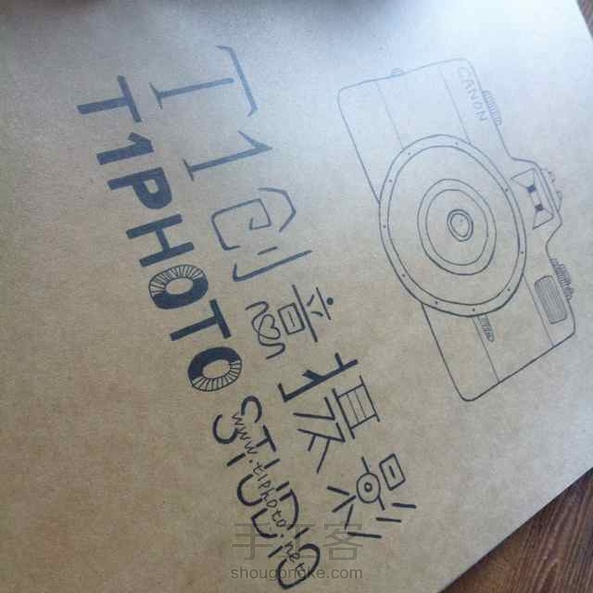 CANON
T1创意摄影
T1PHOTO STUDIO
www.t1photo.net
手工客
shougongke.com